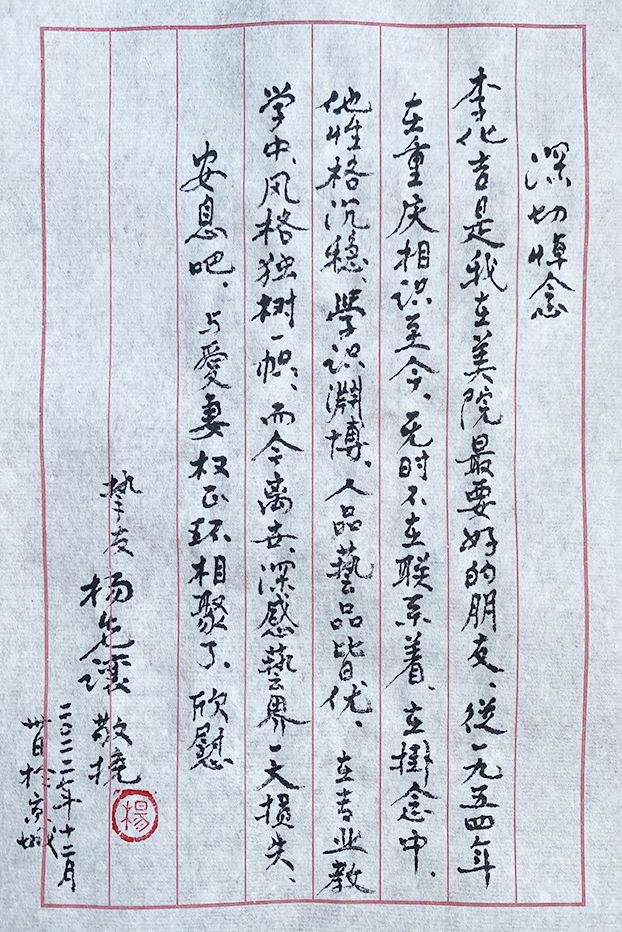 深切悼念
李化吉是我在美院最要好的朋友、從一九五四年
在重庆相识至今、无时不在联系着、在挂念中、
他性格沉稳、學识渊博、人品藝品皆优、在专业教
学中、风格独树一帜、而今离去、深感藝界一大损失、
安息吧、与愛妻权正环相聚了、欣慰
挚友 杨先让 敬挽
二〇二二年十二月
卅日於京城
楊